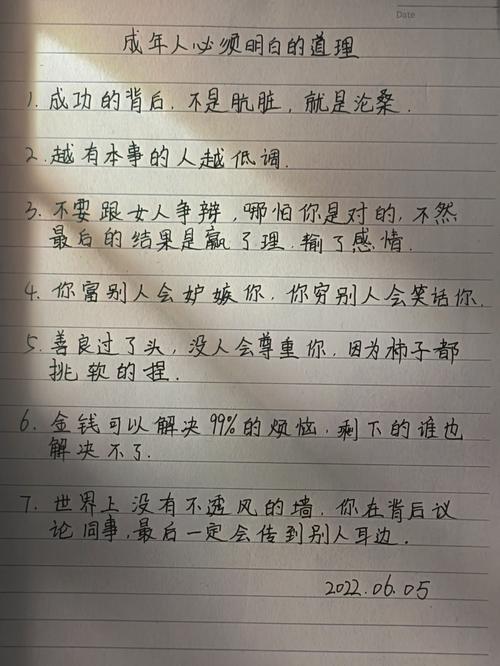 Date
成年人必须明白的道理
1. 成功的背后. 不是肮脏, 就是沧桑.
2. 越有本事的人越低调.
3. 不要跟女人争辩, 哪怕你是对的. 不然
最后的结果是赢了理. 输了感情.
4. 你富别人会妒嫉你, 你穷别人会笑话你.
5. 善良过了头, 没人会尊重你, 因为柿子都
挑软的捏.
6. 金钱可以解决99%的烦恼, 剩下的谁也
解决不了.
7. 世界上没有不透风的墙, 你在背后议
论同事, 最后一定会传到别人耳边.
2022.06.05